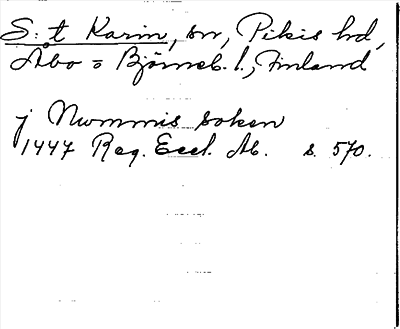 S:t Karin, sn, Pikis hd,
Åbo = Björneb. l., Finland
j Nummis soken
1447 Reg. Eccl. Ab. s. 570.